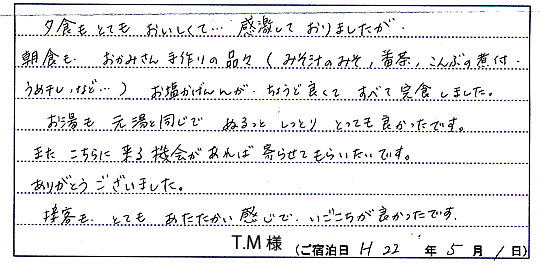 夕食もとてもおいしくて… 感激しておりましたが.
朝食も. おかみさん手作りの品々 ( みそ汁のみそ, 番茶, こんぶの煮付.
うめ干し, など… ) お塩かげんが. ちょうど良くて すべて完食しました。
お湯も 元湯と同じで ぬるっと しっとり とっても良かったです。
また こちらに来る機会があれば 寄らせてもらいたいです。
ありがとうございました。
接客も. とても あたたかい感じで. いごこちが良かったです.
T.M 様 (ご宿泊日 H 22 年 5 月 / 日)